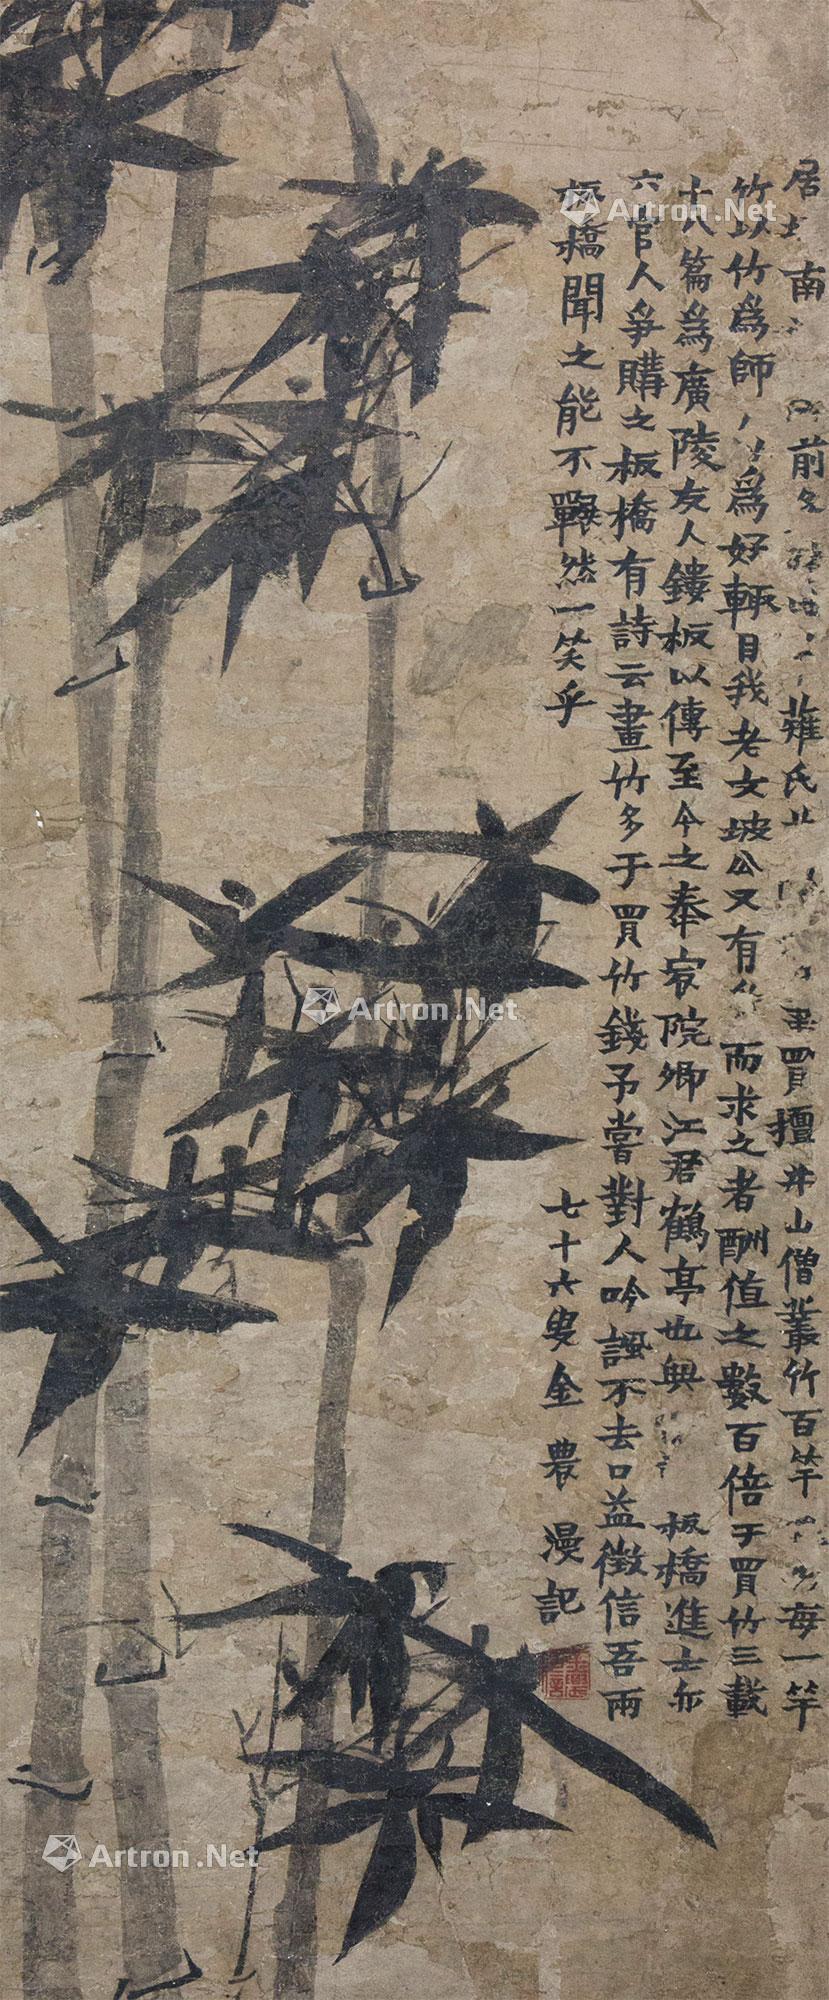 居南前薙氏買擅井山僧叢竹百竿每一竿
竹以竹爲師爲好輒自我老女坡公又有而求之者酬值之數百倍于買竹三載
十八篇爲廣陵友人鏤板以傳至今之奉宸院卿江君鶴亭也與板橋進士亦
六官人爭購之板橋有詩云畫竹多于買竹錢予嘗對人吟諷不去口益徵信吾兩
板橋聞之能不囅然一笑乎
七十六叟金農漫記
Artron.Net
Artron.Net
Artron.Net
Artron.Net